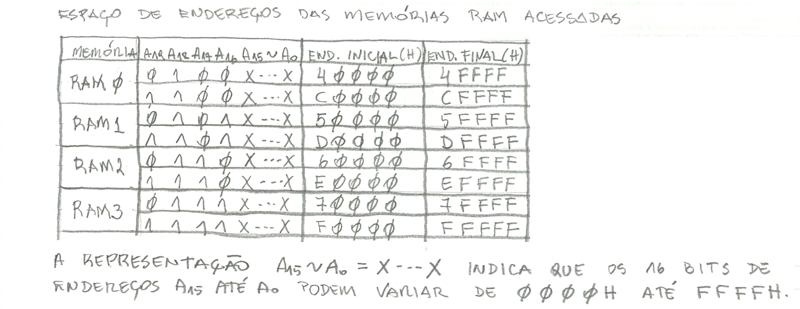 ESPAÇO DE ENDEREÇOS DAS MEMÓRIAS RAM ACESSADAS
MEMÓRIA A19 A18 A17 A16 A15 ~ A0 END. INICIAL(H) END. FINAL(H)
RAM Ø Ø 1 Ø Ø X---X 4ØØØØ 4FFFF
1 1 Ø Ø X---X CØØØØ CFFFF
RAM1 Ø 1 Ø 1 X---X 5ØØØØ 5FFFF
1 1 Ø 1 X---X DØØØØ DFFFF
RAM2 Ø 1 1 Ø X---X 6ØØØØ 6FFFF
1 1 1 Ø X---X EØØØØ EFFFF
RAM3 Ø 1 1 1 X---X 7ØØØØ 7FFFF
1 1 1 1 X---X FØØØØ FFFFF
A REPRESENTAÇÃO A15 ~ A0 = X---X INDICA QUE OS 16 BITS DE
ENDEREÇOS A15 ATÉ A0 PODEM VARIAR DE ØØØØH ATÉ FFFFH.